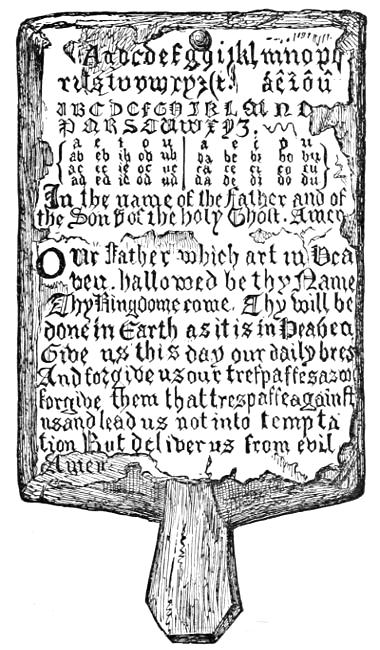 Aabcdefgghijklmnopq
rsſtuvwxyz&t. áéîôû
ABCDEFGHIKLMNO
PQRSTUWXYZ.
a e i o u a e i o u
ab eb ib ob ub ba be bi bo bu
ac ec ic oc uc ca ce ci co cu
ad ed id od ud da de di do du
In the name of the Father and of
the Son & of the holy Ghost. Amen
Our Father which art in Hea
ven, hallowed be thy Name
Thy Kingdome come. Thy will be
done in Earth as it is in Heaben
Give us this day our daily bre
And forgive us our treſpaſſes as we
forgive them that treſpaſſe againſt
us and lead us not into tempta
tion But deliver us from evil
Amen